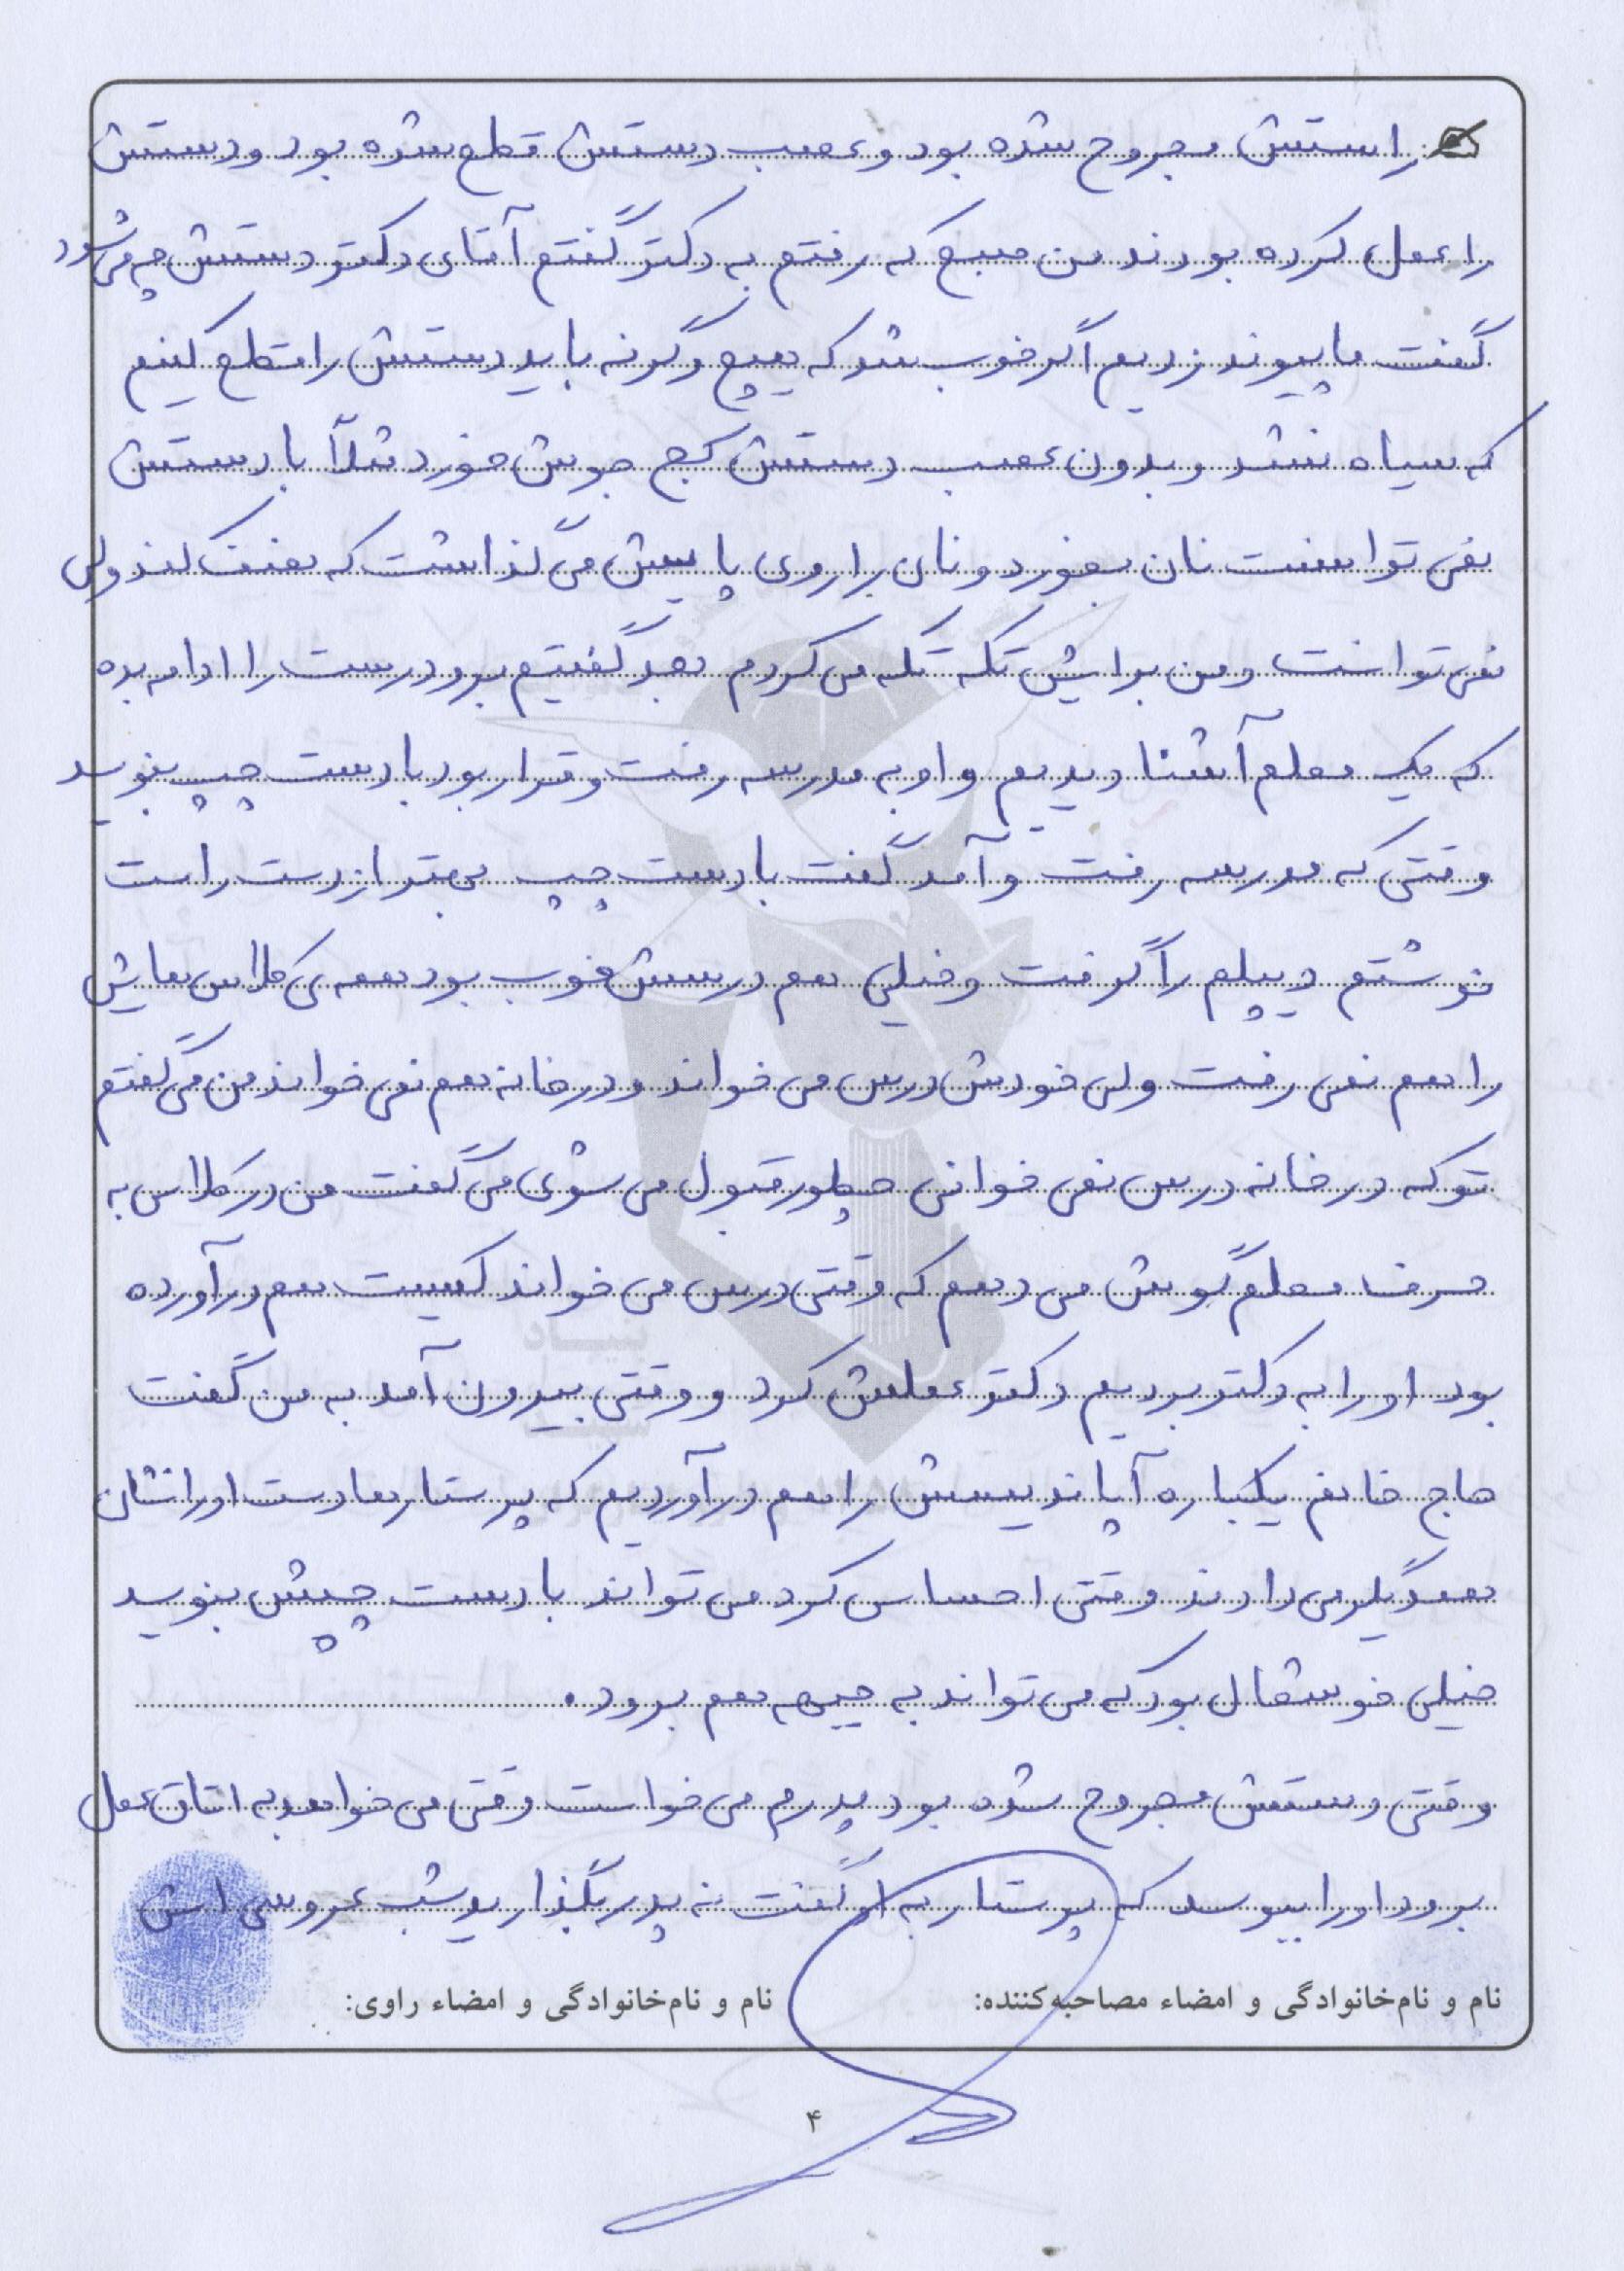 راستش مجروح شده بود و عصب دستش قطع شده بود و دستش
را عمل کرده بودند من صبح که رفتم به دکتر گفتم آقای دکتر دستش چه می شود
گفت ما پیوند زدیم اگر خوب شد که هیچ وگرنه باید دستش را قطع کنیم
که سیاه نشد و بدون عصب دستش کج جوش خورد مثلاً با دستش
نمی توانست نان بخورد و نان را روی پایش می گذاشت که نصف کند ولی
نمی توانست و من برایش تکه تکه می کردم بعد گفتیم برو درست را ادامه بده
که یک معلم آشنا دیدیم و او به مدرسه رفت و قرار بود با دست چپ بنویسد
وقتی که مدرسه رفت و آمد گفت با دست چپ بهتر از دست راست
نوشتم دیپلم را گرفت و خیلی هم درسش خوب بود همه ی کلاس هایش
را هم نمی رفت ولی خودش درس می خواند و در خانه هم نمی خواند من می گفتم
تو که در خانه درس نمی خوانی چطور قبول می شوی می گفت من در کلاس به
حرف معلم گوش می دهم که وقتی درس می خواند کیست هم در آورده
بود او را به دکتر بردیم دکتر عملش کرد و وقتی بیرون آمد به من گفت
حاج خانم یکباره آپاندیسش را هم در آوردیم که پرستارها دست او را نشان
همدیگر می دادند وقتی احساس کرد می تواند با دست چپش بنویسد
خیلی خوشحال بود که می تواند به جبهه هم برود.
وقتی دستش مجروح شده بود پدرم می خواست وقتی می خواهد به اتاق عمل
برود او را ببوسد که پرستار به او گفت نه پدر بگذارید شب عروسی اش
نام و نام‌خانوادگی و امضاء مصاحبه‌کننده: نام و نام‌خانوادگی و امضاء راوی:
۴